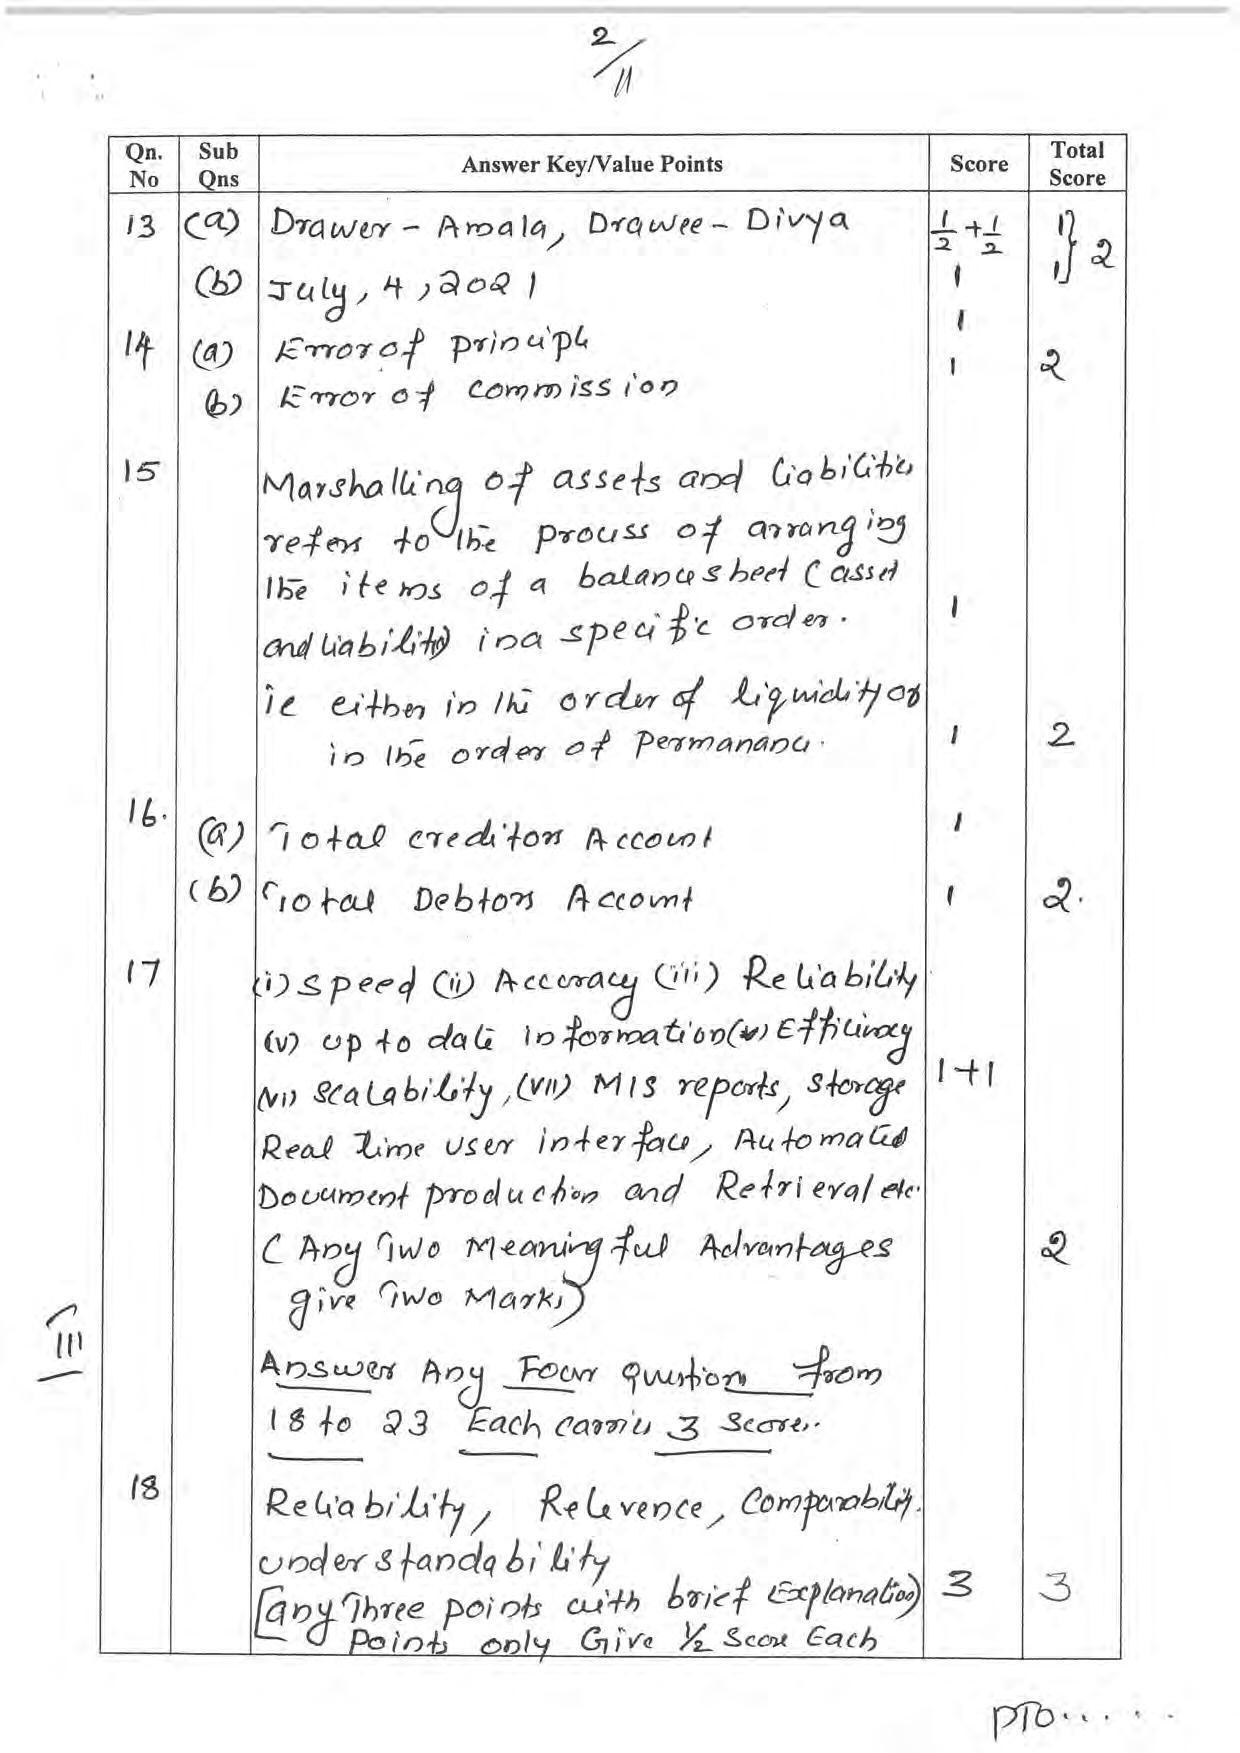 2/11
Qn. No Sub Qns Answer Key/Value Points Score Total Score
13 (a) Drawer - Amala, Drawee - Divya 1/2 + 1/2 1
(b) July, 4, 2021 1 1 } 2
14 (a) Error of principle 1
(b) Error of commission 1 2
15 Marshalling of assets and liabilities
refers to the process of arranging
the items of a balance sheet (asset
and liability) in a specific order. 1
ie either in the order of liquidity or
in the order of Permanance. 1 2
16. (a) Total creditors Account 1
(b) Total Debtors Account 1 2.
17 (i) Speed (ii) Accuracy (iii) Reliability
(v) up to date information (v) Efficiency
(vi) Scalability, (VII) MIS reports, Storage 1+1
Real time user interface, Automated
Document production and Retrieval etc.
(Any Two Meaningful Advantages 2
give Two Marks)
III
Answer Any Four question from
18 to 23 Each carries 3 Score..
18 Reliability, Relevence, Comparability.
understandability
[any Three points with brief Explanation) 3 3
Points only Give ½ Score Each
PTO......